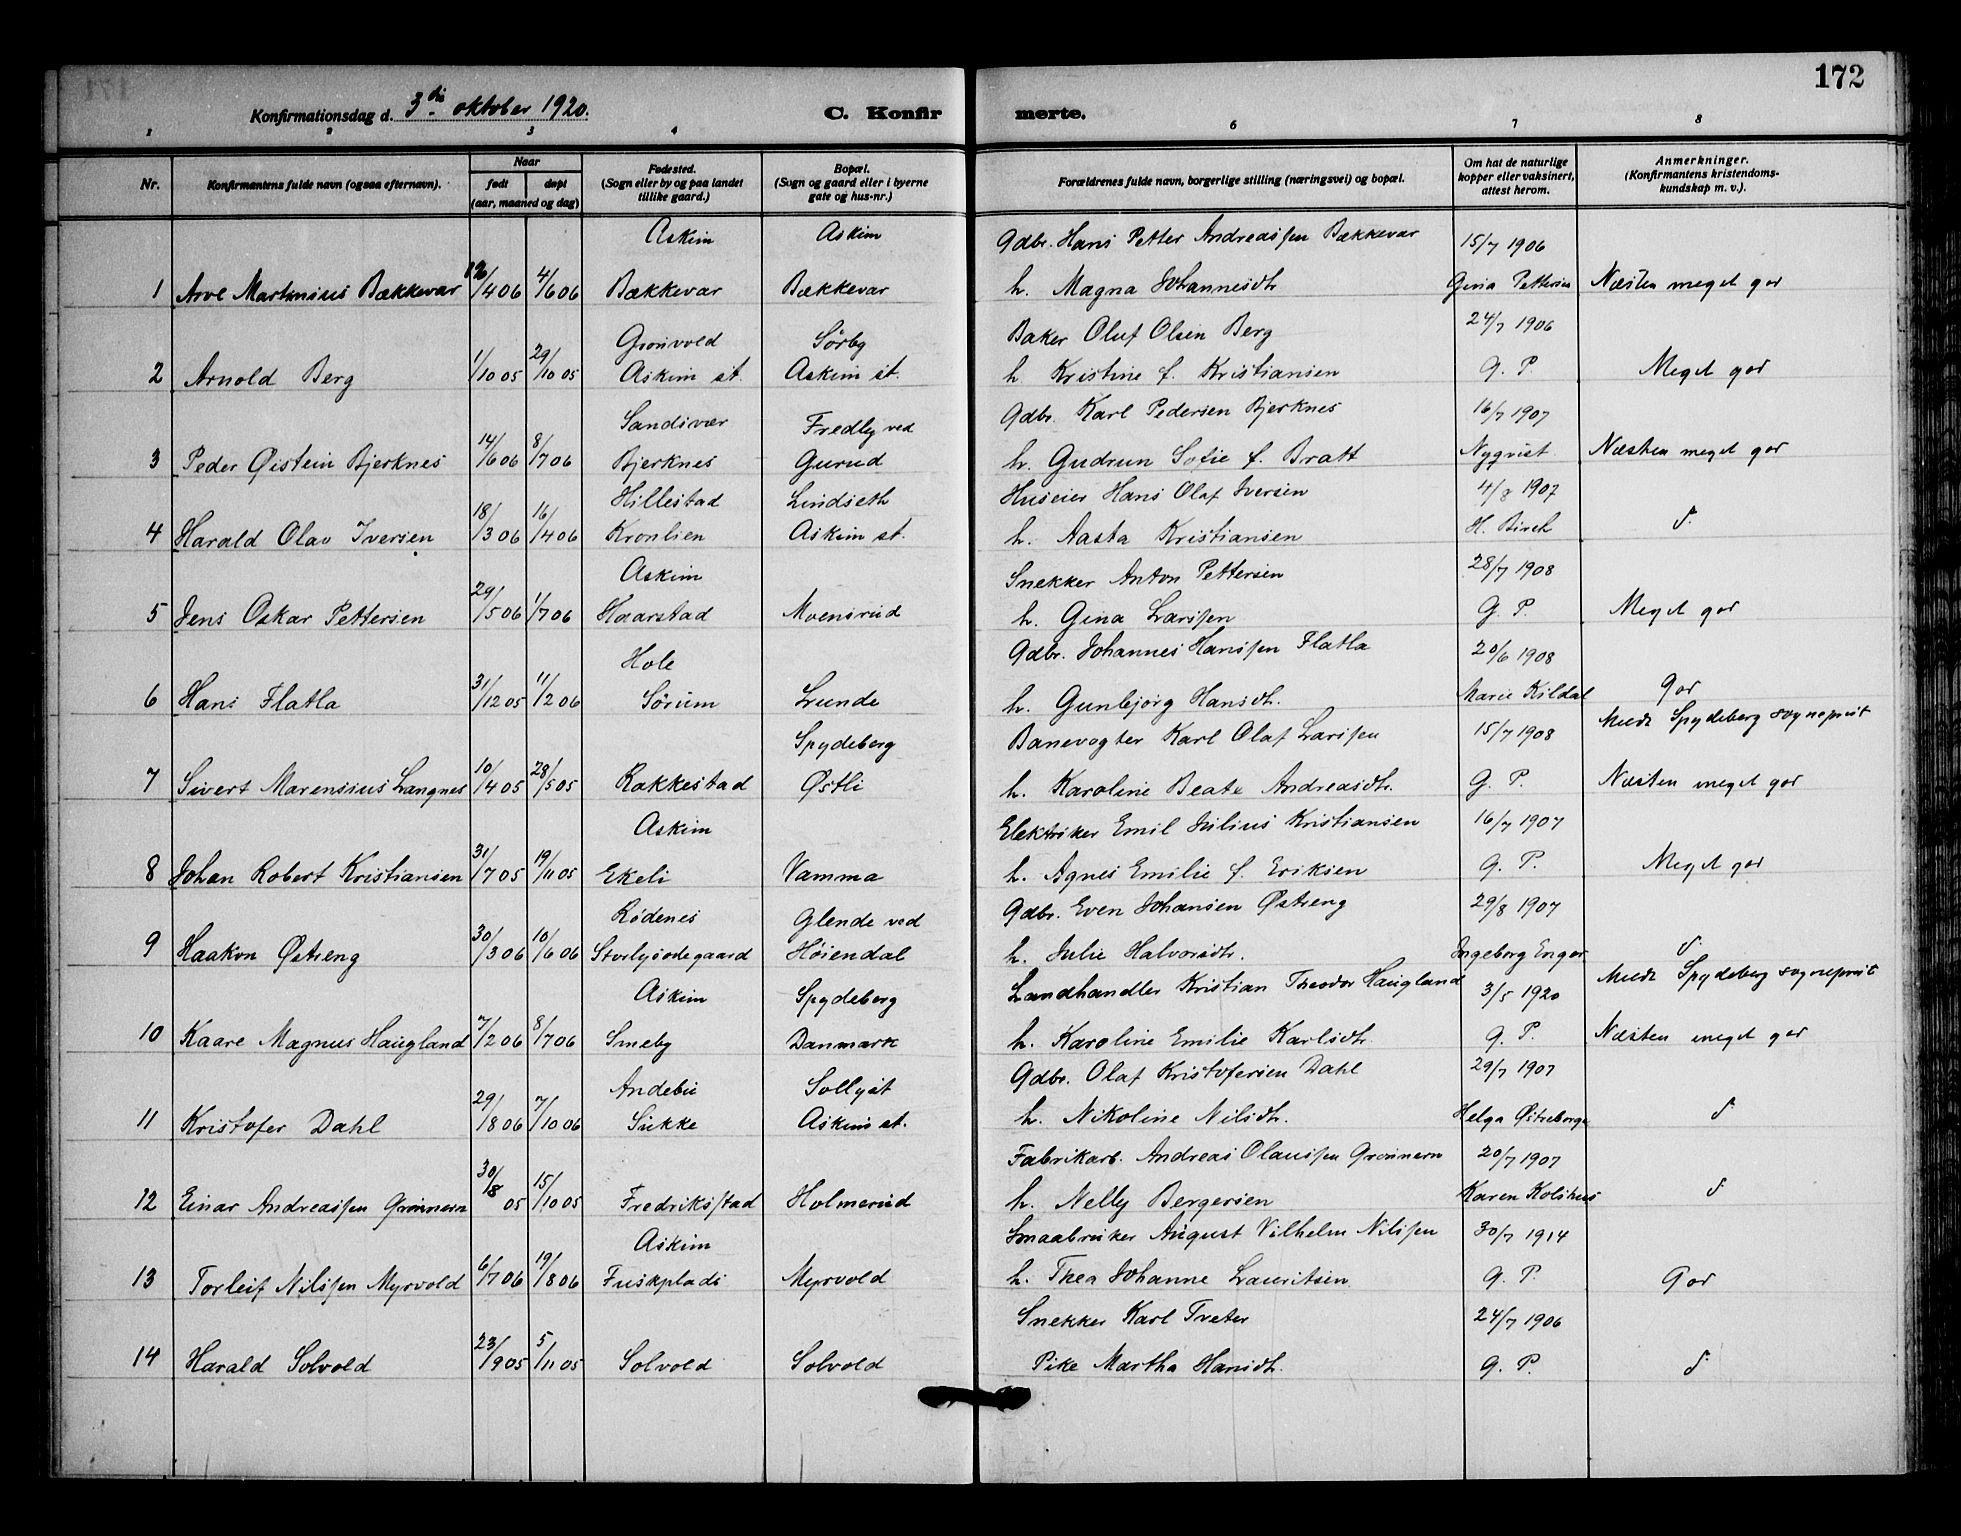 172
Konfirmationsdag d. 3die oktober 1920. C. Konfirmerte.
1 2 3 4 6 7 8
Nr. Konfirmantens fulde navn (ogsaa efternavn). Naar født døpt (aar, maaned og dag) Fødested. (Sogn eller by og paa landet tillike gaard.) Bopæl. (Sogn og gaard eller i byerne gate og hus-nr.) Forældrenes fulde navn, borgerlige stilling (næringsvei) og bopæl. Om hat de naturlige kopper eller vaksinert, attest herom. Anmerkninger. (Konfirmantens kristendomskundskap m. v.).
Askim Askim Gdbr. Hans Petter Andreassen Bækkevar 15/7 1906
1 Arve Martinius Bækkevar /4 06 4/6 06 Bækkevar Bækkevar h. Magna Johannesdtr Gina Pettersen Næsten meget god
Grønvold Sørby Baker Oluf Olsen Berg 24/7 1906
2 Arnold Berg 1/10 05 29/10 05 Askim st. Askim st. h. Kristine f. Kristiansen G. P. Meget god
Sandsvær Fredly ved Gdbr. Karl Pedersen Bjerknes 16/7 1907
3 Peder Øistein Bjerknes 14/6 06 8/7 06 Bjerknes Gurud h. Gudrun Sofie f. Bratt Nyqvist Næsten meget god
Hillestad Lindseth Huseier Hans Olaf Iversen 4/8 1907
4 Harald Olav Iversen 18/3 06 16/4 06 Kronlien Askim st. h. Aasta Kristiansen H. Birch d.
Askim Snekker Anton Pettersen 28/7 1908
5 Jens Oskar Pettersen 29/5 06 1/7 06 Haarstad Moensrud h. Gina Larssen G. P. Meget god
Hole Gdbr. Johannes Hanssen Flatla 20/6 1908
6 Hans Flatla 31/12 05 11/2 06 Sørum Lunde h. Gunbjørg Hansdtr. Marie Kildal God
Spydeberg Banevogter Karl Olaf Larssen 15/7 1908 Meldt Spydeberg sogneprest
7 Sivert Marensius Langnes 10/4 05 28/5 05 Rakkestad Østli h. Karoline Beate Andreasdtr. G. P. Næsten meget god
Askim Elektriker Emil Julius Kristiansen 16/7 1907
8 Johan Robert Kristiansen 31/7 05 19/11 05 Ekeli Vamma h. Agnes Emilie f. Eriksen G. P. Meget god
Rødenes Glende ved Gdbr. Even Johansen Østreng 29/8 1907
9 Haakon Østreng 30/3 06 10/6 06 Storlysødegaard Høiendal h. Julie Halvorsdtr. Ingeborg Enger d.
Askim Spydeberg Landhandler Kristian Theodor Haugland 3/5 1920 Meldt Spydeberg sogneprest
10 Kaare Magnus Haugland 7/2 06 8/7 06 Smeby Danmark h. Karoline Emilie Karlsdtr. G. P. Næsten meget god
Andebu Sollyst Gdbr. Olaf Kristofersen Dahl 29/7 1907
11 Kristofer Dahl 29/8 06 7/10 06 Sukke Askim st. h. Nikoline Nilsdtr. Helga d
Fabrikarb. Andreas Olaussen Grønnern 20/7 1907
12 Einar Andreassen Grønnern 30/8 05 15/10 05 Fredriksstad Holmerud h. Nelly Bergersen Karen Kolshus d
Askim Smaabruker August Vilhelm Nilssen 30/7 1914
13 Torleif Nilssen Myrvold 6/7 06 19/8 06 Fuskplads Myrvold h. Thea Johanne Lauritsen G. P. God
Snekker Karl Tveter 24/7 1906
14 Harald Solvold 23/9 05 5/11 05 Solvold Solvold Pike Martha Hansdtr. G. P. d